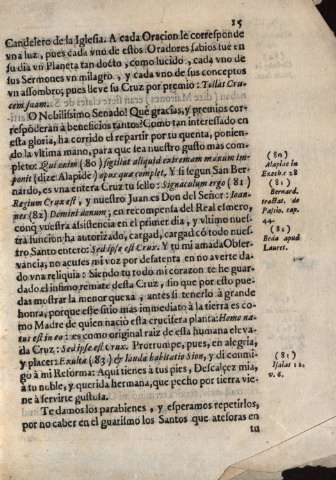 15
Candelero de la Iglesia. A cada Oracion le corresponde
vna luz, pues cada vno de estos Oradores sabios fue en
su dia vn Planeta tan docto, como lucido, cada vno de
sus Sermones vn milagro, y cada vno de sus conceptos
vn assombro; pues lleve su Cruz por premio: Tollat Cru-
cem suam.
O Nobilissimo Senado! Què gracias, y premios cor-
responderàn à beneficios tantos? Como tan interessado en
esta gloria, ha corrido el repartir por tu quenta, ponien-
do la vltima mano, para que sea nuestro gusto mas com-
pleto: Qui enim (80) sigillat aliquid extremam manum im-
ponit (dize Alapide) opus que complet. Y si segun San Ber-
nardo, es vna entera Cruz tu sello: Signaculum ergo (81)
Regium Crux est, y nuestro Juan es Don del Señor: Ioan-
nes (82) Domini donum; en recompensa del Real esmero,
conq vuestra assistencia en el primer dia, y vltimo nues-
tra funcion ha autorizado, cargad, cargad cõ todo nues-
tro Santo entero: Sed ipse est Crux. Y tu mi amada Obser-
vancia, no acuses mi voz por desatenta en no averte da-
do vna reliquia: Siendo tu todo mi corazon te he guar-
dado el infimo remate desta Cruz, sio que por esto pue-
das mostrar la menor quexa, antes si tenerlo à grande
honra, porque este sitio mas immediato à la tierra es co-
mo Madre de quien naciò esta crucifera planta: Homo na-
tus est in ea: es como original raiz de essa humana eleva-
da Cruz: Sed ipse est Crux. Prorrumpe, pues, en alegria,
y placer: Exulta (83) & lauda habitatio Sion, y di conmi-
go à mi Reforma: Aqui tienes à tus pies, Descalçez mia,
à tu noble, y querida hermana, que pecho por tierra vie-
ne à servirte gustosa.
Te damos los parabienes, y esperamos repetirlos,
por no caber en el guarismo los Santos que atesoras en
tu
(80)
Alapide in
Ezech. 28
(81)
Bernard.
tractat. de
Pasio. cap.
44.
(82)
Beda apud
Lauret.
(83)
Isaiæ 12.
v. 6.